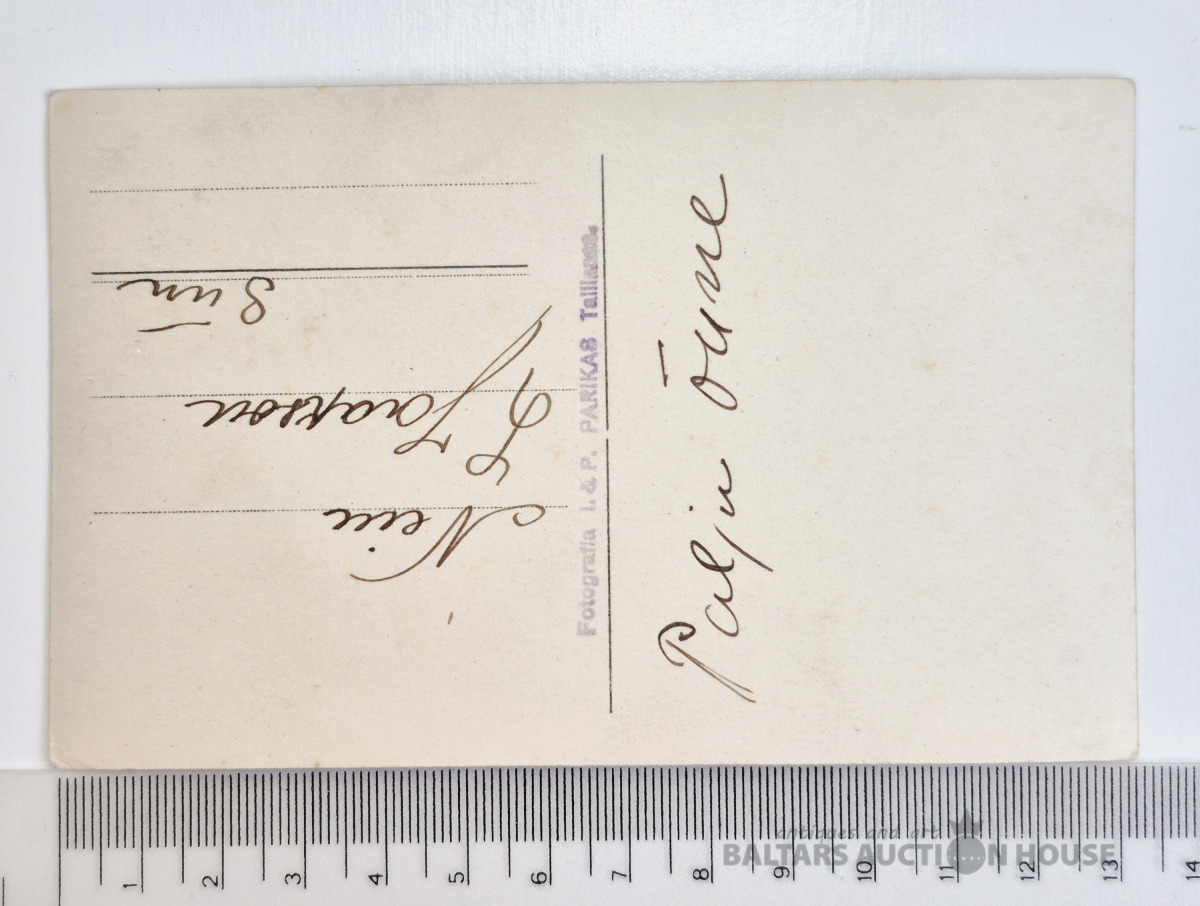 Palju õnne
Fotografia I. & P. PARIKAS Tallinnas.
Neiu
Jaakson
Siin
1 2 3 4 5 6 7 8 9 10 11 12 13 14
antiques and art
BALTARS AUCTION HOUSE